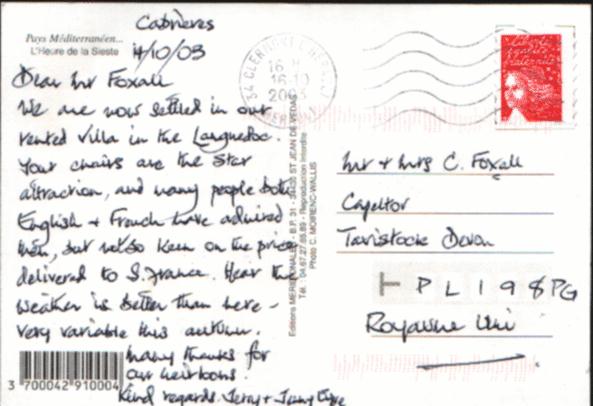 Cabrières
Pays Méditerranéen...
L'Heure de la Sieste
14/10/03
Dear Mr Foxall
We are now settled in our
rented villa in the Languedoc.
Your chairs are the star
attraction, and many people both
English + French have admired
them, but not so keen on the price
delivered to S. France. Hear the
weather is better than here -
very variable this autumn.
Many thanks for
our heirlooms.
Kind regards. Jerry + Jenny
3 700042 910004
34 CLERMONT L'HERAULT
16 H
16-10
2003
HERAULT
Editions MERIDIONALES - B.P. 31 - 34430 ST JEAN DE VEDAS
Tél. : 04.67.27.65.89 - Reproduction Interdite
Photo C. MOIRENC-WALLIS
Liberté
égalité
fraternité
Mr + Mrs C. Foxall
Capeltor
Tavistock Devon
PL198PG
Royaume Uni